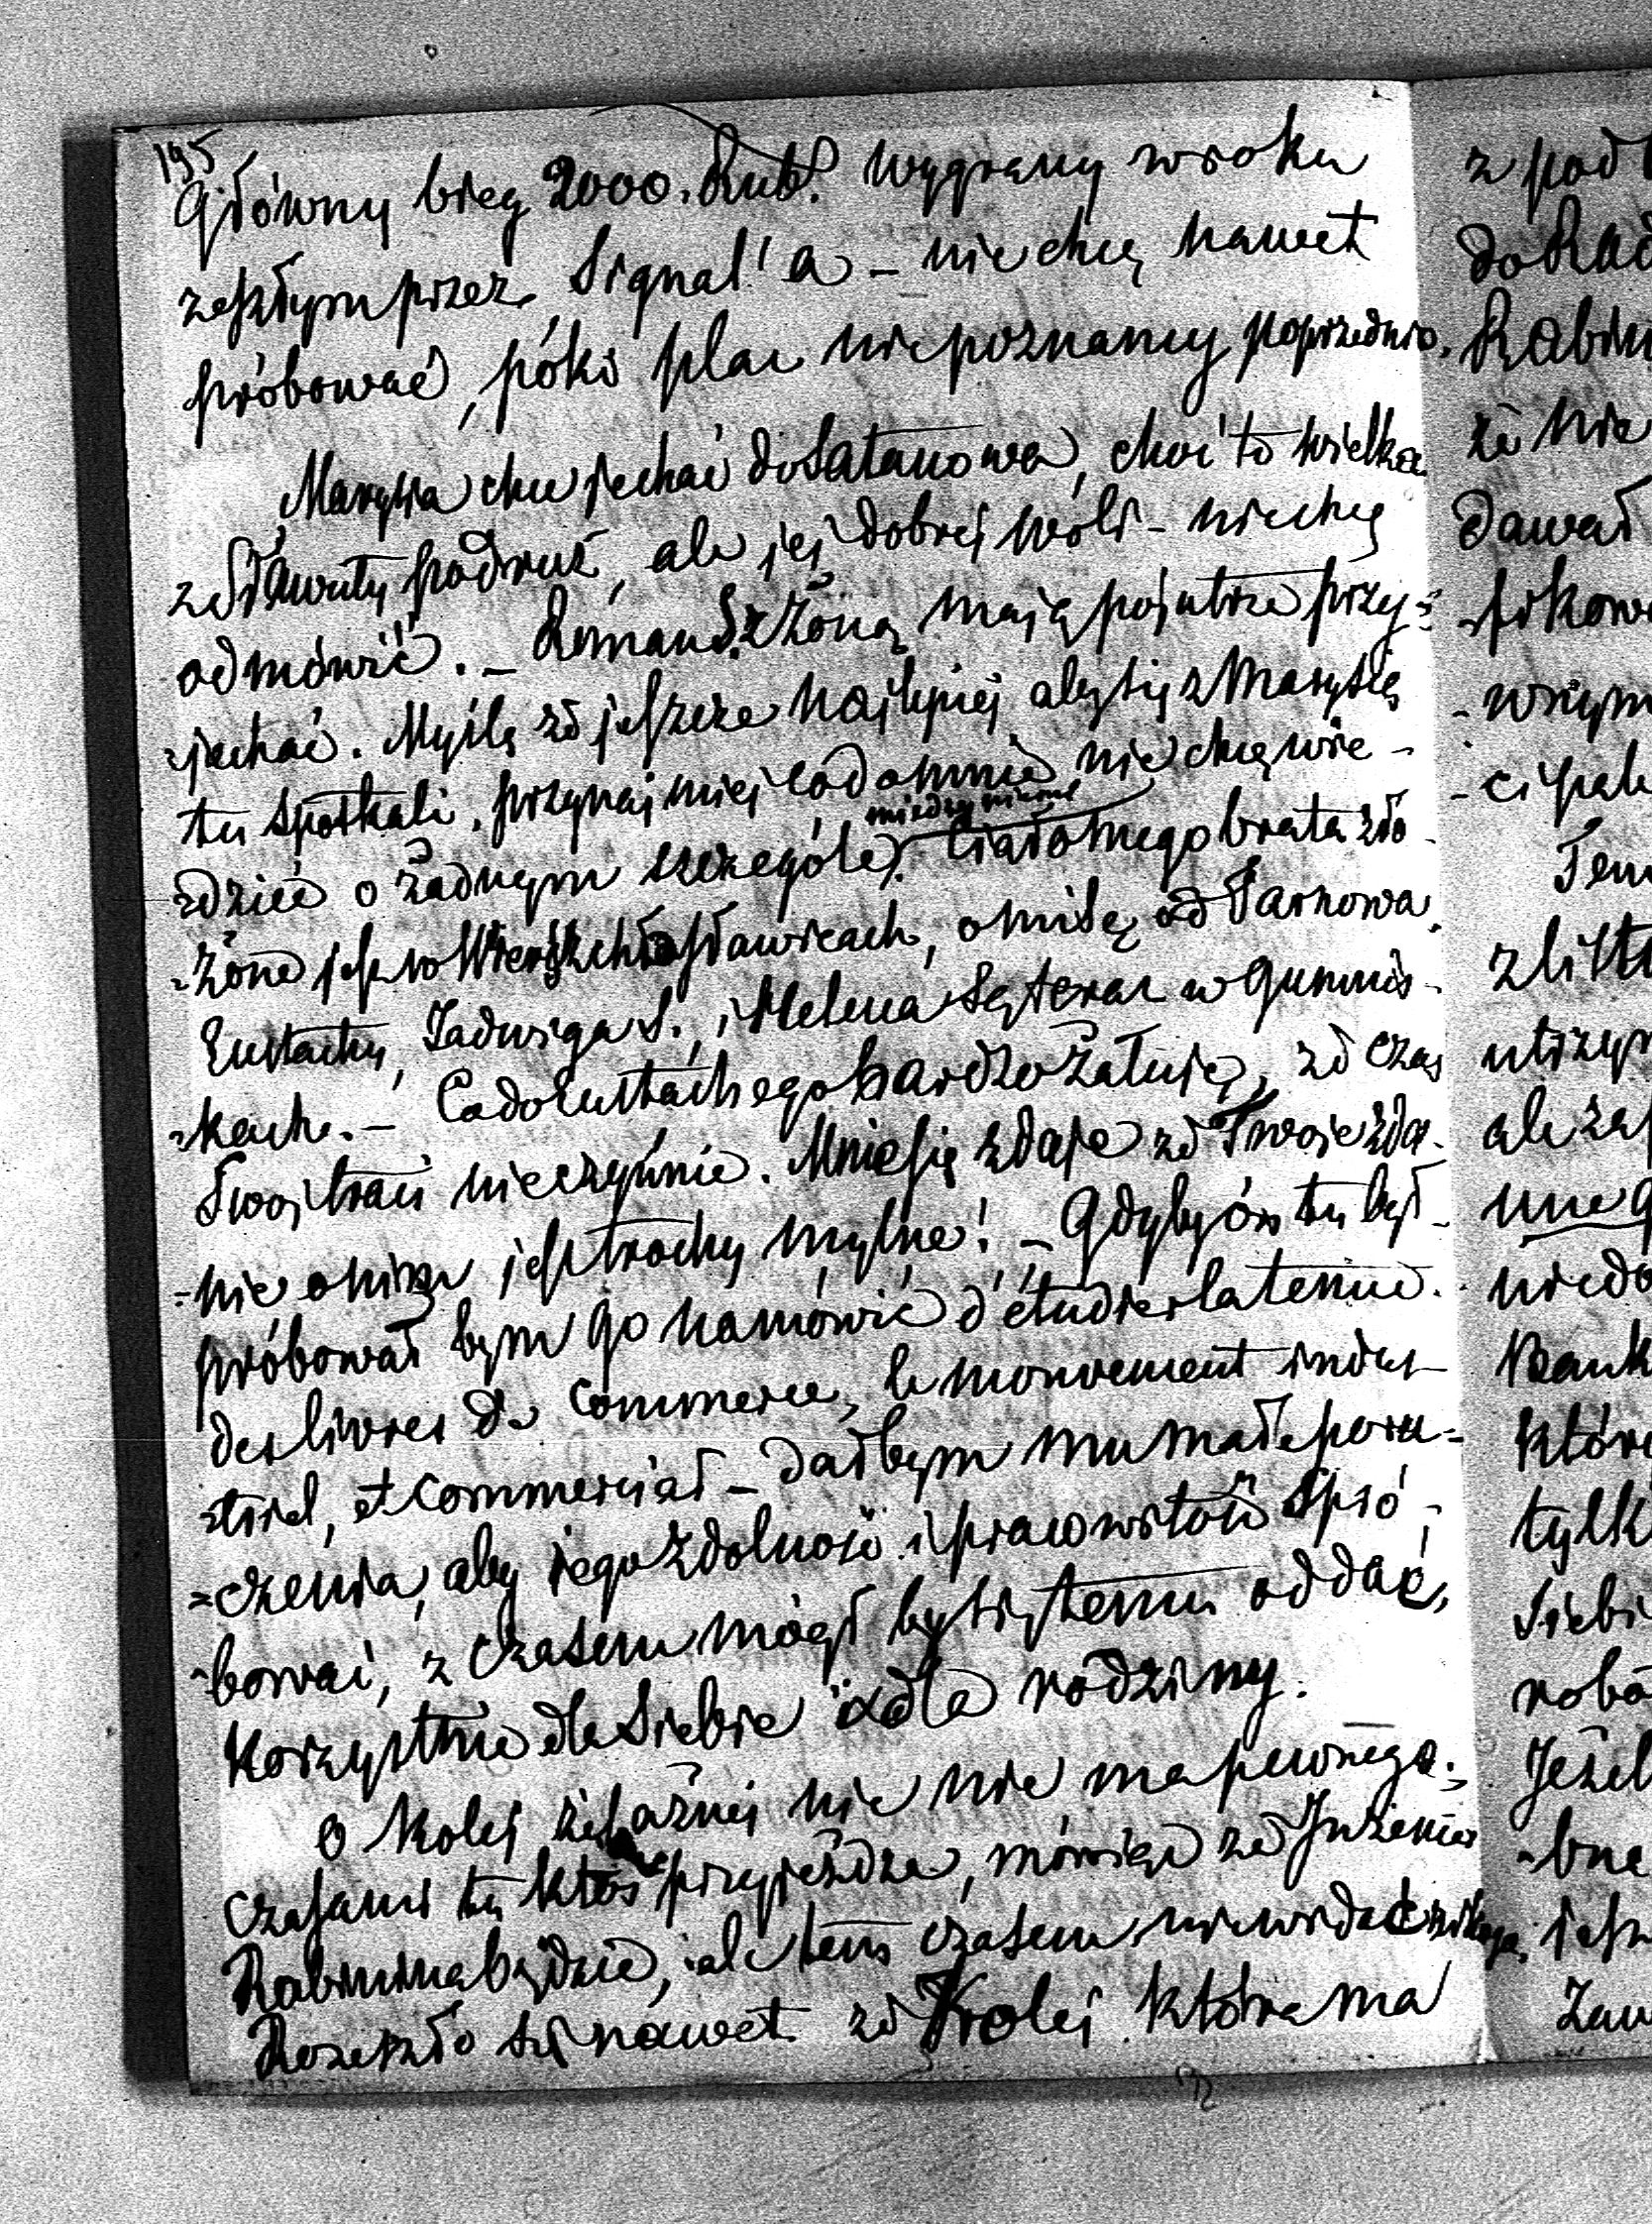 195
Główny bieg 2000. Rub. wygrany w roku
zeszłym przez Signal'a – nie chcę nawet
próbować, póki plac nie poznamy poprzednio.
Marysia chce jechać do Satanowa, choć to wielka
z Sławuty podruż, ale jej dobrej woli – nie chcę
odmówić. – Roman S. z Żoną mają pojutrze przy-
-jechać. Myślę że jeszcze najlepiej, aby się z Marysią
tu spotkali, przynajmiej co do mnie nie chcę wie-
-dzieć o żadnym szczególe między niemi. Ciało mego brata zło-
-żone jest w Wierzchosławicach, o milę od Tarnowa.
Eustachy, Jadwiga S. i Helena są teraz w Gumnis-
-kach. – Co do Eustachego bardzo żałuję, że czas
Swoj traci nieczynnie. Mnie się zdaje że Twoje zda-
-nie o nim jest trochę mylne! – Gdyby ón tu był
próbował bym go namówić d'étudier la tenue
des livres de commerce, le mouvement indus-
-triel, et commerciał – dałbym mu małe poru-
-czenia, aby jego zdolność i pracowitość spró-
-bować, z czasem mógł by się temu oddać,
korzystnie dla Siebie i dla rodziny.
O Kolej żelaznej nic nie ma pewnego;
czasami tu ktoś przyjeżdża, mówiąc że Inżenier
Rabinina będzie, ale tem czasem nie widać nikogo.
Rozeszło się nawet że Kolej która ma
z pod
do Rad
Rabin
że nie
dawał
-fikow
-wszym
-cipal
Tem
z list
utrzym
ale za
une g
niedo
Bank
które
tylk
siebi
robo
Jeżel
-bne
jesz
Zaw